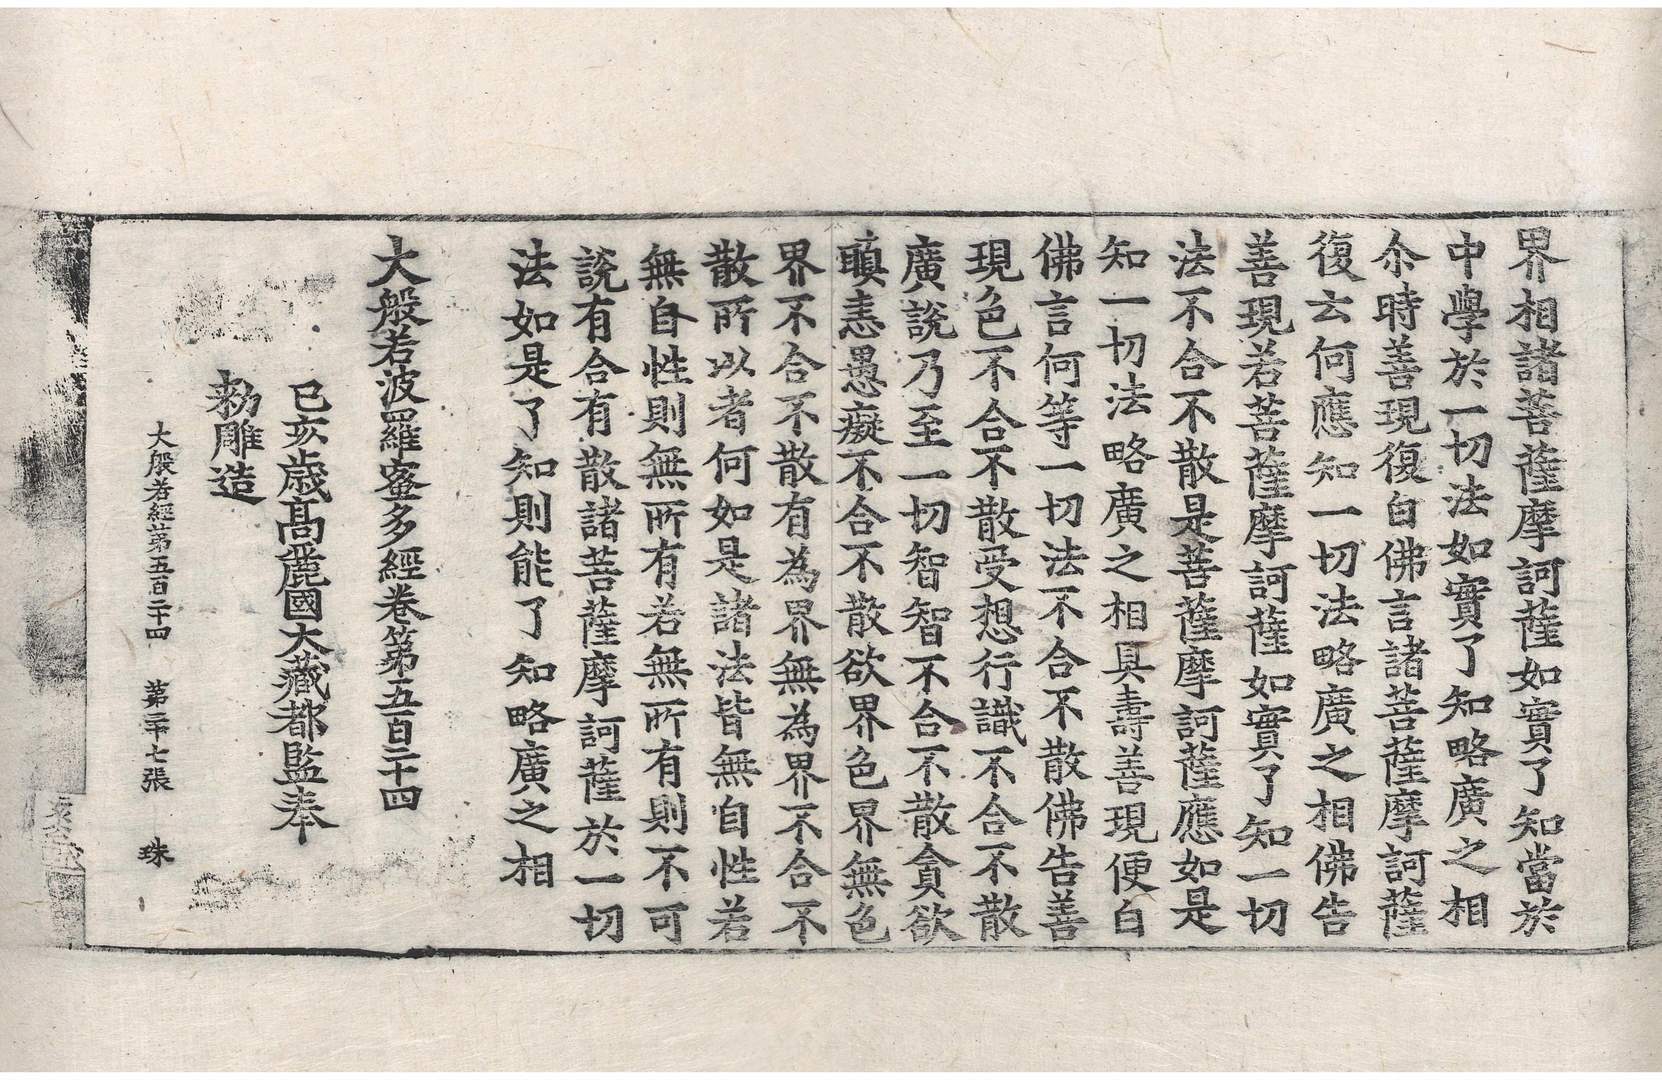 界相諸菩薩摩訶薩如實了知當於
中學於一切法如實了知略廣之相
尒時善現復白佛言諸菩薩摩訶薩
復云何應知一切法略廣之相佛告
善現若菩薩摩訶薩如實了知一切
法不合不散是菩薩摩訶薩應如是
知一切法略廣之相具壽善現便白
佛言何等一切法不合不散佛告善
現色不合不散受想行識不合不散
廣說乃至一切智智不合不散貪欲
瞋恚愚癡不合不散欲界色界無色
界不合不散有為界無為界不合不
散所以者何如是諸法皆無自性若
無自性則無所有若無所有則不可
說有合有散諸菩薩摩訶薩於一切
法如是了知則能了知略廣之相
大般若波羅蜜多經卷第五百二十四
己亥歲高麗國大藏都監奉
勑雕造
大般若經第五百二十四 第二十七張 珠